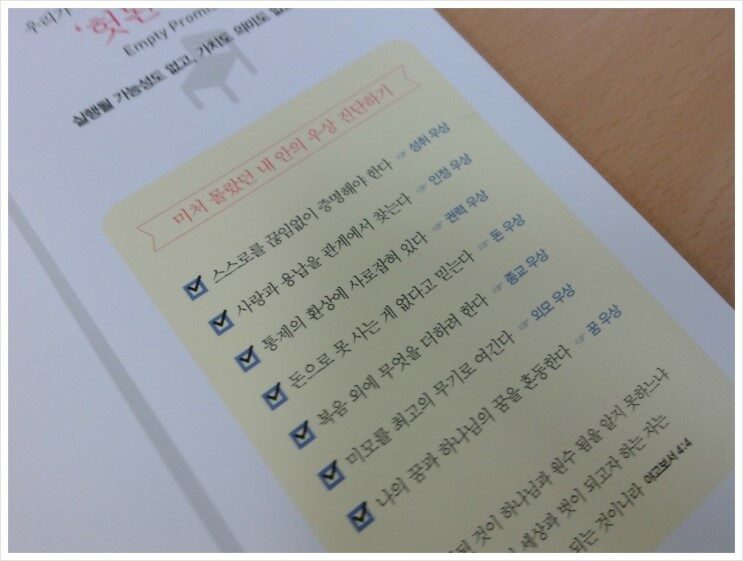 우리가
'헛된
Empty Promi
실행될 가능성도 없고, 가치도 의미도 없
미처 몰랐던 내 안의 우상 진단하기
스스로를 끊임없이 증명해야 한다 ☞ 성취 우상
사랑과 용납을 관계에서 찾는다 ☞ 인정 우상
통제의 환상에 사로잡혀 있다 ☞ 권력 우상
돈으로 못 사는 게 없다고 믿는다 ☞ 돈 우상
복음 외에 무엇을 더하려 한다 ☞ 종교 우상
미모를 최고의 무기로 여긴다 ☞ 외모 우상
나의 꿈과 하나님의 꿈을 혼동한다 ☞ 꿈 우상
된 것이 하나님과 원수 됨을 알지 못하느냐
세상과 벗이 되고자 하는 자는
되는 것이니라 야고보서 4:4